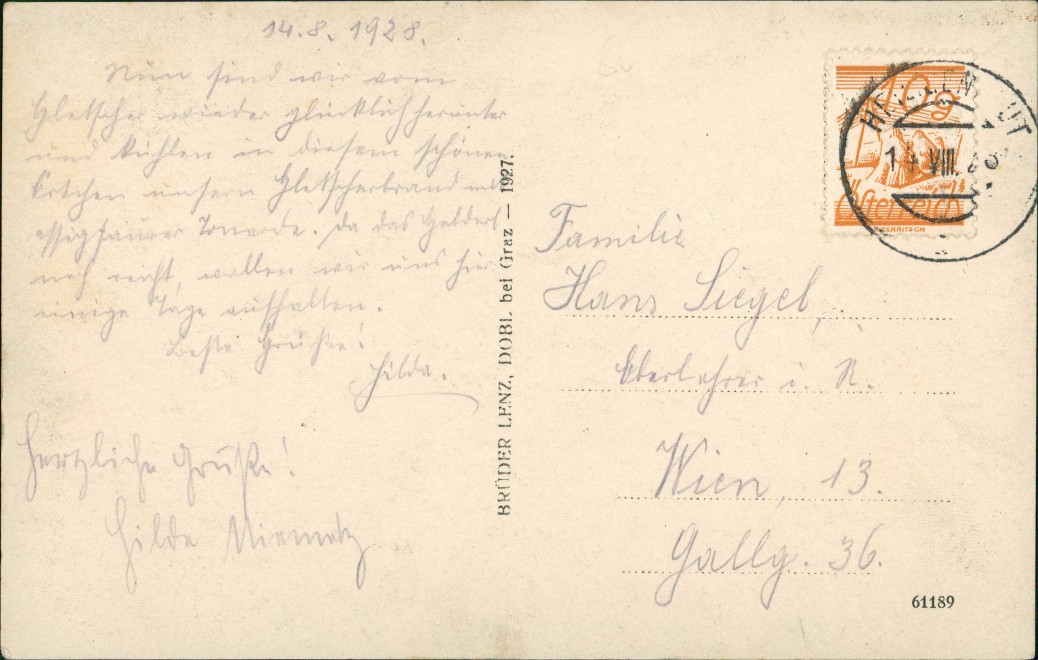 14.8.1928.
Nun sind wir vom
Gletscher wieder glücklich herunter
und kühlen in diesem schönen
Örtchen unsern Gletscherbrand mit
essigsaurer Tonerde. Da das Geld
noch reicht, wollen wir uns hier
einige Tage aufhalten.
Beste Grüße!
Hilda.
Herzliche Grüße!
Hilde Niemetz
BRÜDER LENZ, DOBL bei Graz — 1927.
10g
Österreich
14 VIII. 28
Familie
Hans Siegel,
Oberlehrer i. R.
Wien, 13.
Gallg. 36.
61189